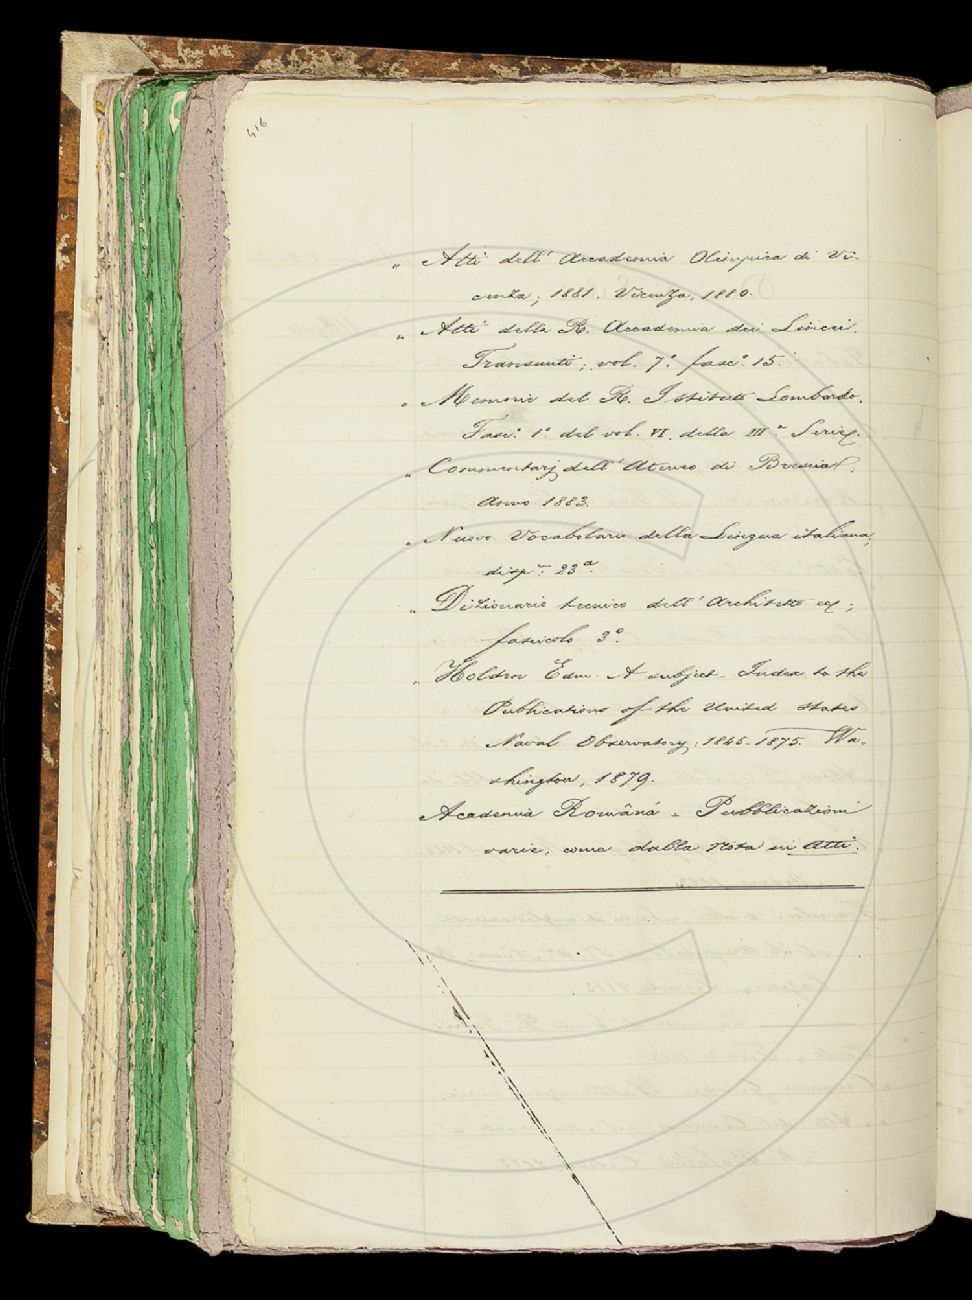 416
„ Atti dell' Accademia Olimpica di Vi-
cenza; 1881. Vicenza, 1880.
„ Atti della R. Accademia dei Lincei.
Transunti; vol. 7.° fasc.° 15.
„ Memorie del R. Istituto Lombardo.
Fasc.° 1° del vol. VI. della III.a Serie.
„ Commentarj dell' Ateneo di Brescia.
Anno 1883.
„ Nuovo Vocabolario della Lingua italiana;
disp.n 23a.
„ Dizionario tecnico dell' Architetto ec;
fascicolo 3°.
„ Holden Edw. A subject-Index to the
Publications of the United States
Naval Observatory; 1845-1875. Wa-
shington, 1879.
Academia Română - Pubblicazioni
varie, come dalla nota in Atti.